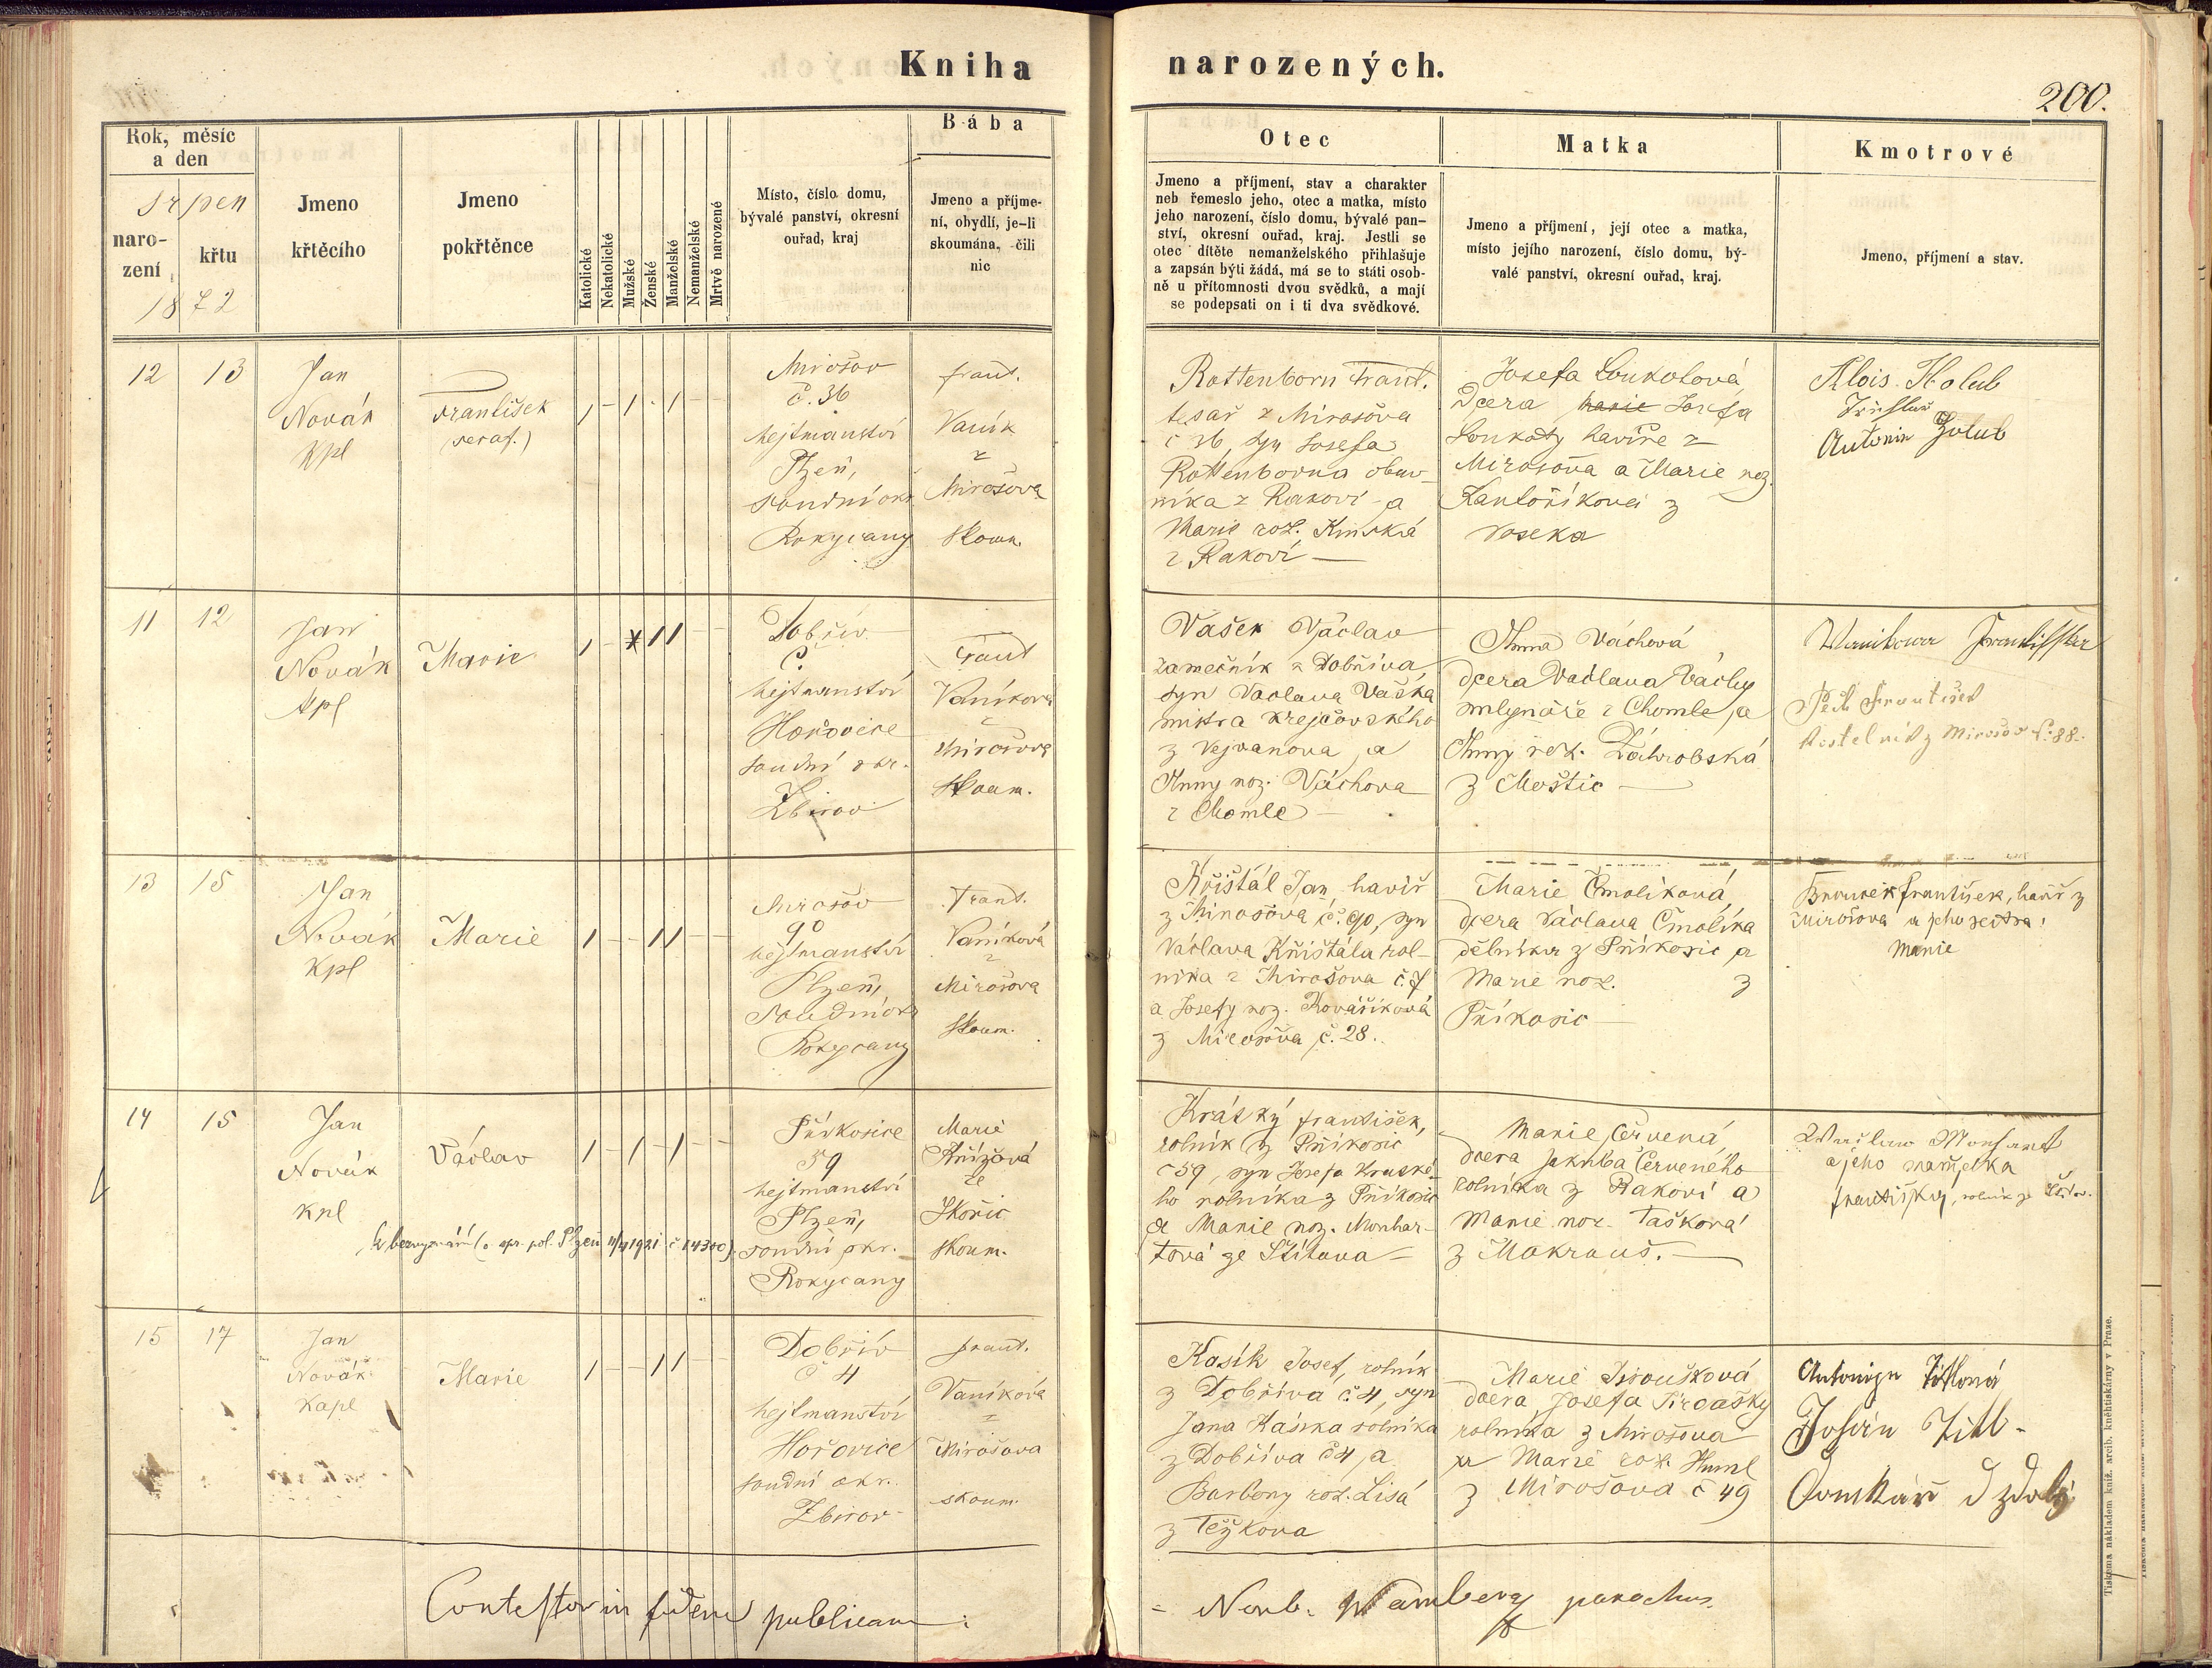 Kniha narozených.
200.
Rok, měsíc
a den
Srpen
naro-
zení
křtu
1872
Jmeno
křtěcího
Jmeno
pokřtěnce
Katolické
Nekatolické
Mužské
Ženské
Manželské
Nemanželské
Mrtvě narozené
Místo, číslo domu,
bývalé panství, okresní
ouřad, kraj
Bába
Jmeno a příjme-
ní, obydlí, je-li
skoumána, čili
nic
Otec
Jmeno a příjmení, stav a charakter
neb řemeslo jeho, otec a matka, místo
jeho narození, číslo domu, bývalé pan-
ství, okresní ouřad, kraj. Jestli se
otec dítěte nemanželského přihlašuje
a zapsán býti žádá, má se to státi osob-
ně u přítomnosti dvou svědků, a mají
se podepsati on i ti dva svědkové.
Matka
Jmeno a příjmení, její otec a matka,
místo jejího narození, číslo domu, bý-
valé panství, okresní ouřad, kraj.
Kmotrové
Jmeno, příjmení a stav.
12 13
Jan
Novák
kpl
František
(seraf.)
Mirošov
č. 36
hejtmanství
Plzeň,
soudní okr.
Rokycany
Frant.
Vaník
z
Mirošova
skoum.
Rottenborn Frant.
tesař z Mirošova
č 36, syn Josefa
Rottenborna obuv-
níka z Rakoví a
Marie roz. Kmská
z Rakoví —
Josefa Loukotová
dcera Marie Josefa
Loukoty havíře z
Mirošova a Marie roz.
Kantoříkové z
Voseka
Alois Holub
Antonin Holub
11 12
Jan
Novák
kpl
Marie
Dobřív
č.
hejtmanství
Hořovice
soudní okr.
Zbirov
Frant
Vaníková
z
Mirošova
skoum.
Vašek Václav
zamečník z Dobříva,
syn Vaclava Vaška
mistra krejčovského
z Vejvanova a
Anny roz. Váchova
z Chomle —
Anna Váchová
dcera Václava Váchy
mlynáře z Chomle, a
Anny roz. Záhrobská
z Moštic —
Wanikowa Frantisska
František
kostelník z Mirošov č. 88.
13 15
Jan
Novák
kpl
Marie
Mirošov
90
hejtmanství
Plzeň,
soudní okr
Rokycany
Frant.
Vaníková
z
Mirošova
skoum.
Křištál Jan havíř
z Mirošova č. 90, syn
Václava Křištála rol-
níka z Mirošova č. 7
a Josefy roz. Kovaříková
z Mirošova č. 28.
Marie Čmolíková,
dcera Václava Čmolíka
dělníka z Příkosic a
Marie roz. z
Příkosic —
František, havíř z
Mirošova a jeho sestra
Marie
14 15
Jan
Novák
kpl
Václav
Příkosice
59
hejtmanství
Plzeň,
soudní okr.
Rokycany
Marie
Křížová
ze
Skořic
skoum.
bezvyznání (o. spr. pol. Plzeň 11/4 1921 č 14300)
Krátký František,
rolník z Příkosic
č 59, syn Josefa Krátké-
ho rolníka z Příkosic
a Marie roz. Monhar-
tová ze Štítova —
Marie Červená,
dcera Jakuba Červeného
rolníka z Rakoví a
Marie roz. Tašková
z Mokrouš. —
a jeho manželka
Františka, rolník ze Štítov.
15 17
Jan
Novák
kapl
Marie
Dobřív
č 4
hejtmanství
Hořovice
soudní okr.
Zbirov
Frant.
Vaníková
z
Mirošova
skoum.
Kasík Josef, rolník
z Dobříva č 4, syn
Jana Kasíka rolníka
z Dobříva č 4, a
Barbory roz. Lisá
z Těškova
Marie Jiroušková
dcera Josefa Jiroušky
rolníka z Mirošova
a Marie roz. Huml
z Mirošova č 49
Antonije Tittlová
Contestor in fidem publicam:
= Norb. Wamberg parochus.
Tiskem a nákladem kníž. arcib. kněhtiskárny v Praze.